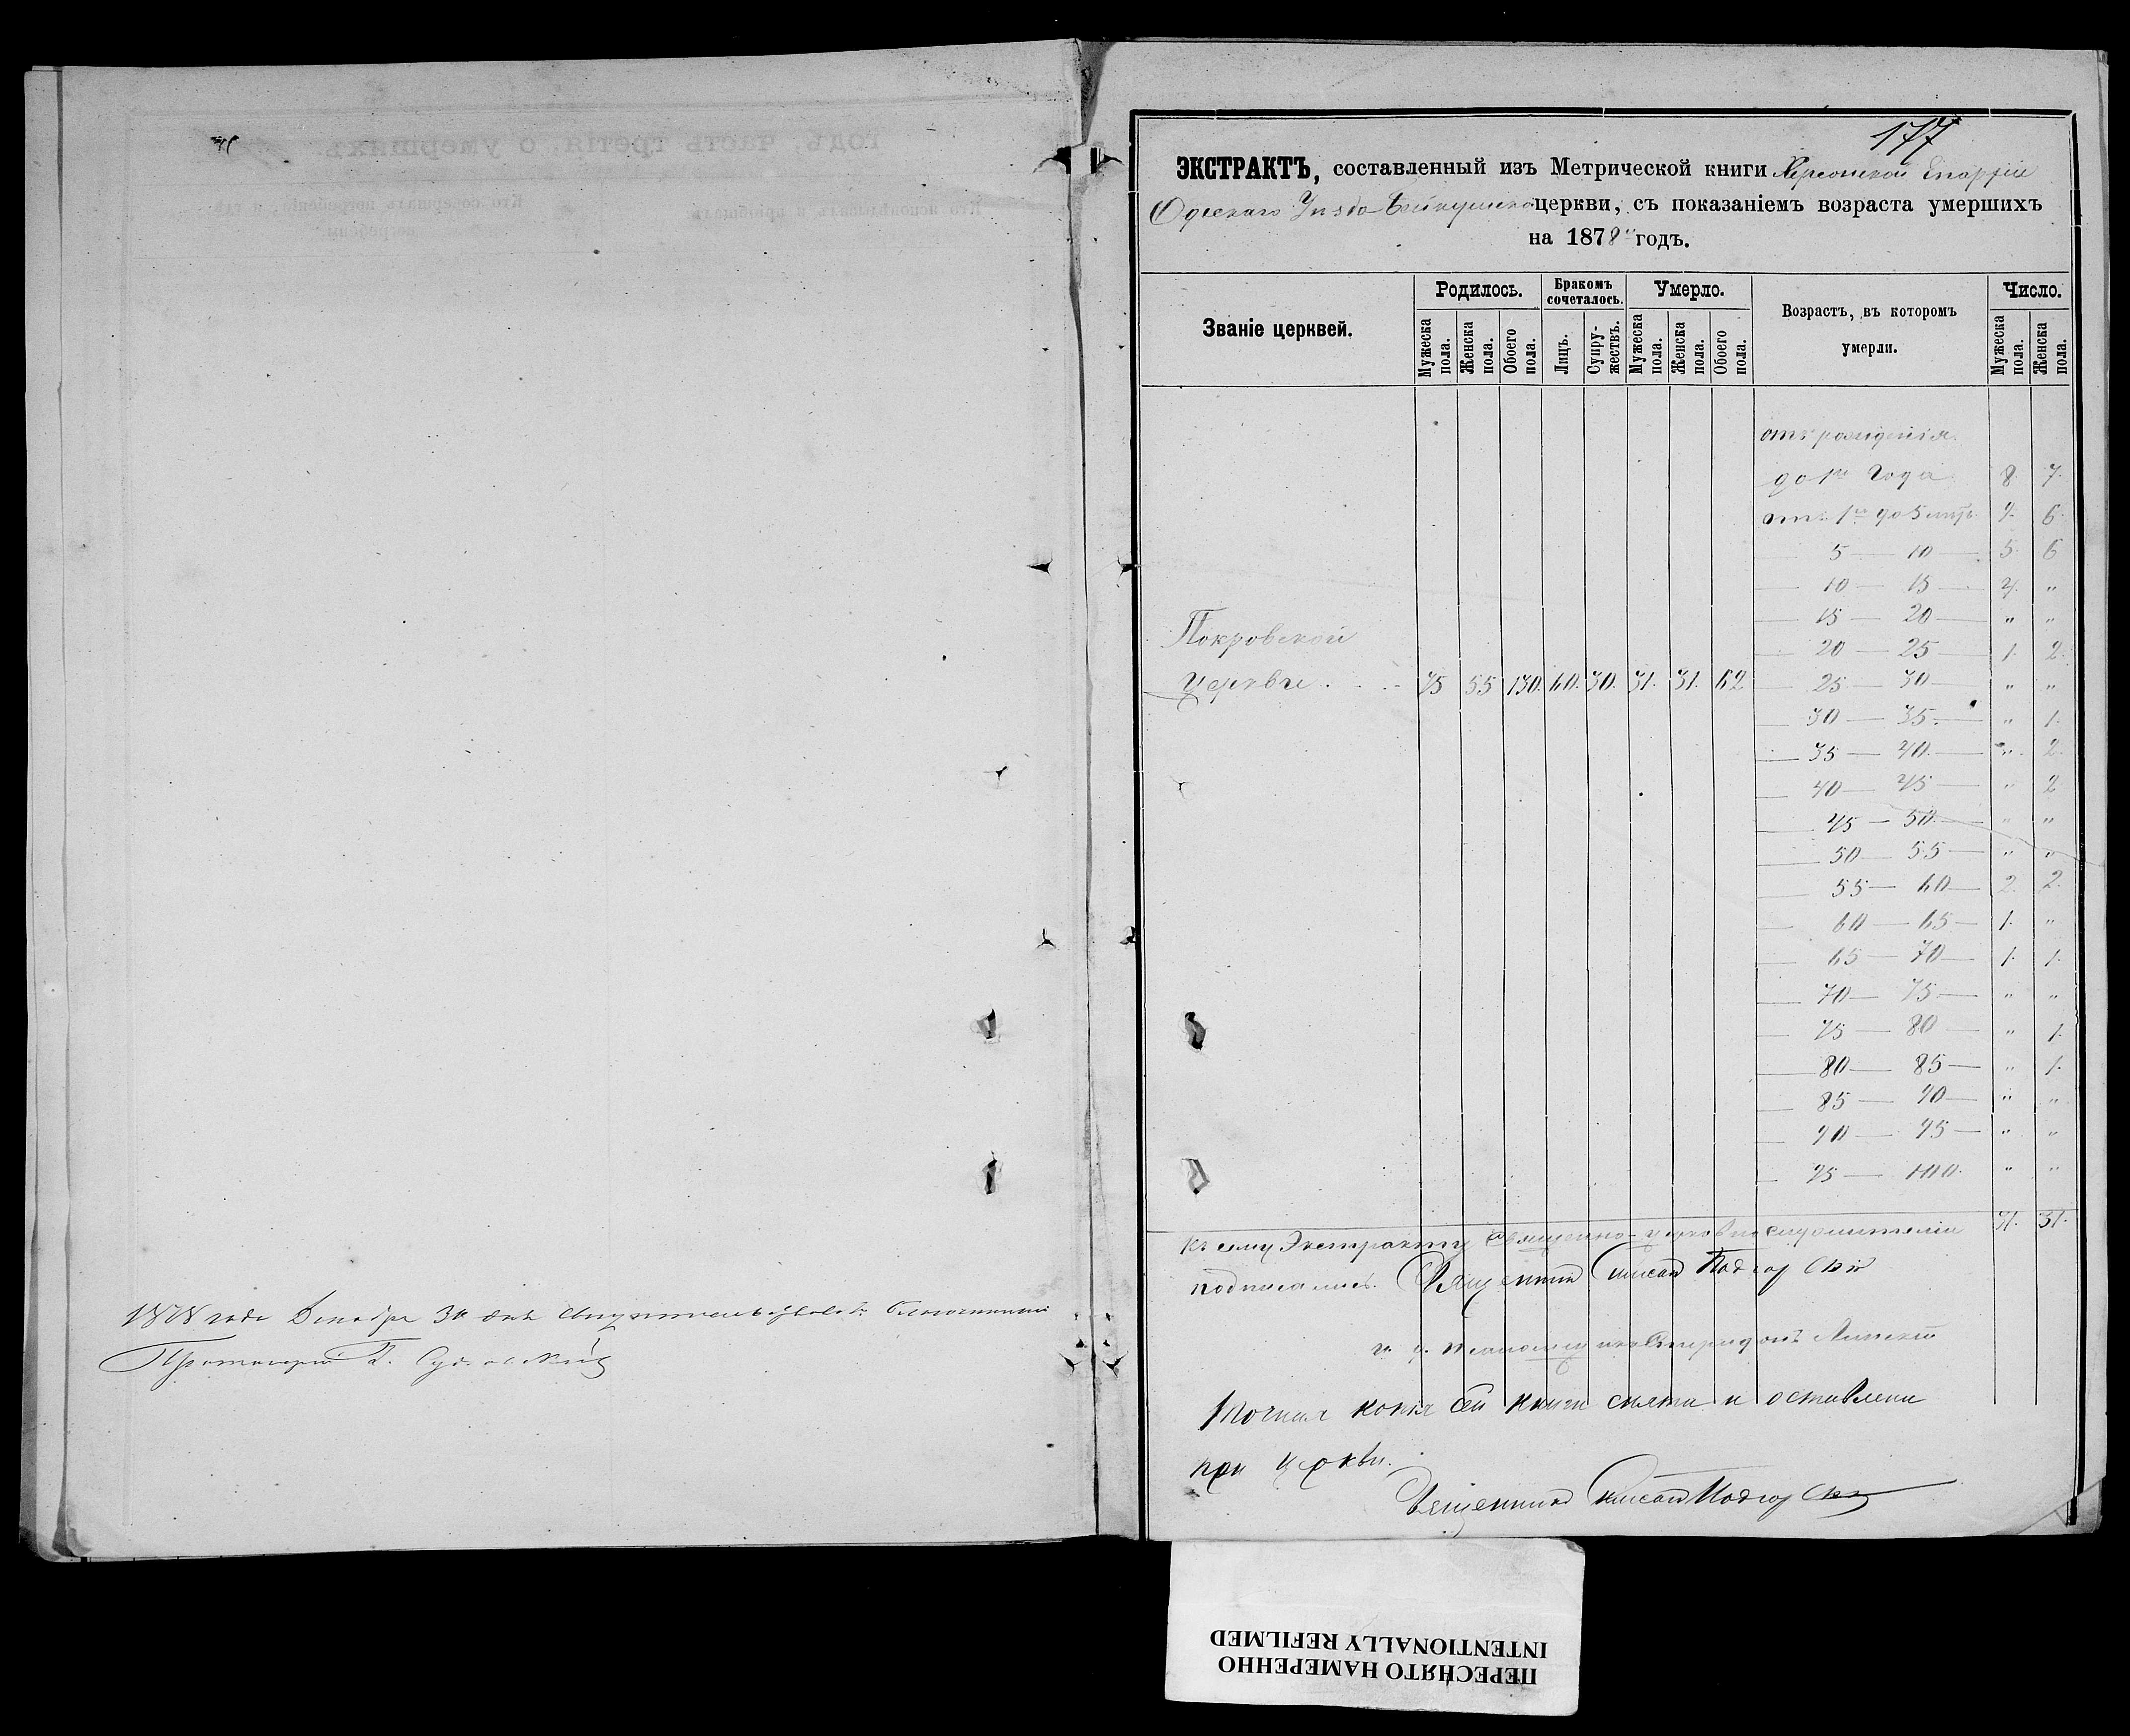 1878 года Декабря 30 дня свидетельствовалъ благочинный
Протоіерей
177
ЭКСТРАКТЪ, составленный изъ Метрической книги Херсонской Епархіи
Одескаго Уѣзда Бейкушской церкви, съ показаніемъ возраста умершихъ
на 1878 годъ.
Званіе церквей.
Родилось.
Бракомъ сочеталось.
Умерло.
Возрастъ, въ которомъ умерли.
Число.
Мужеска пола.
Женска пола.
Обоего пола.
Лицъ.
Супружествъ.
Мужеска пола.
Женска пола.
Обоего пола.
Мужеска пола.
Женска пола.
отъ рожденія
до 1го года 8. 7.
от 1го до 5 лѣтъ 9. 6.
5 — 10 — 5. 6
10 — 15 — 4. "
15 — 20 — " "
Покровской
20 — 25 1. 2.
церкви . . . 75 55 130. 60. 30. 31. 31. 62
25 — 30 — " "
30 — 35 — " 1.
35 — 40 — " 2.
40 — 45 — " 2
45 — 50 — " "
50 — 55 — " "
55 — 60 — 2. 2.
60 — 65 — 1. "
65 — 70 — 1. 1.
70 — 75 — " "
75 — 80 — " 1.
80 — 85 — " 1.
85 — 90 — " "
90 — 95 — " "
95 — 100. " "
31. 31.
Къ сему Экстракту Священно-церковнослужители
подписались. Священникъ
и. д. псаломщика Спиридонъ Липскій
Точная копія сей книги снята и оставлена
при церкви.
Священникъ
ПЕРЕСНЯТО НАМЕРЕННО
INTENTIONALLY REFILMED